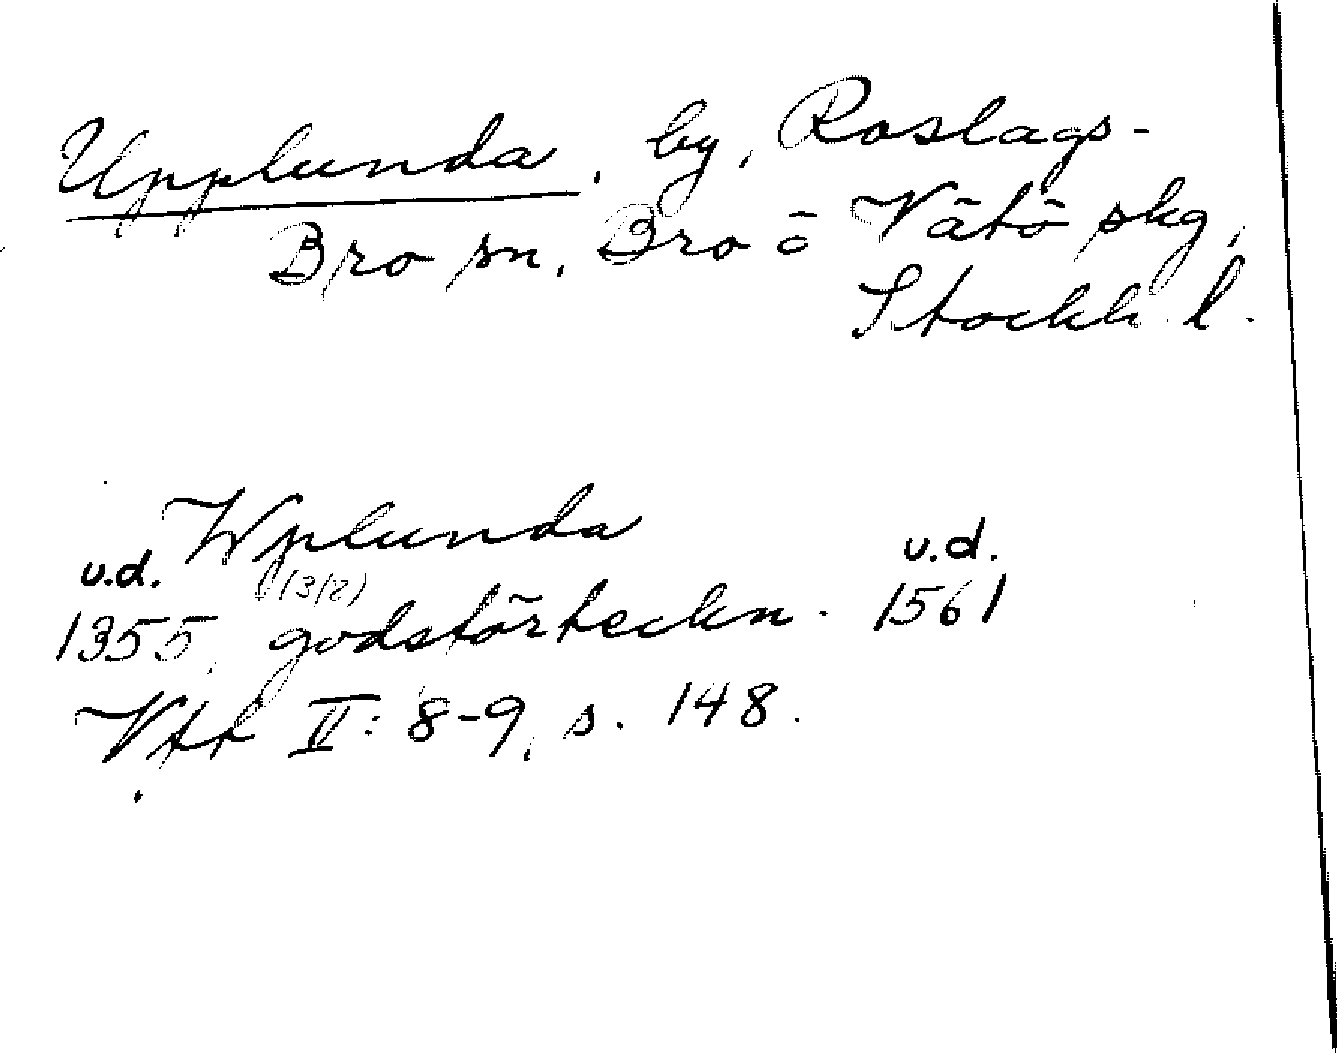 Upplunda, by, Roslags-
Bro sn, Bro o Vätö skg,
Stockh. l.
Wplunda
u.d. u.d.
(3/2)
1355, godsförteckn. 1561
Vtt II: 8-9, s. 148.